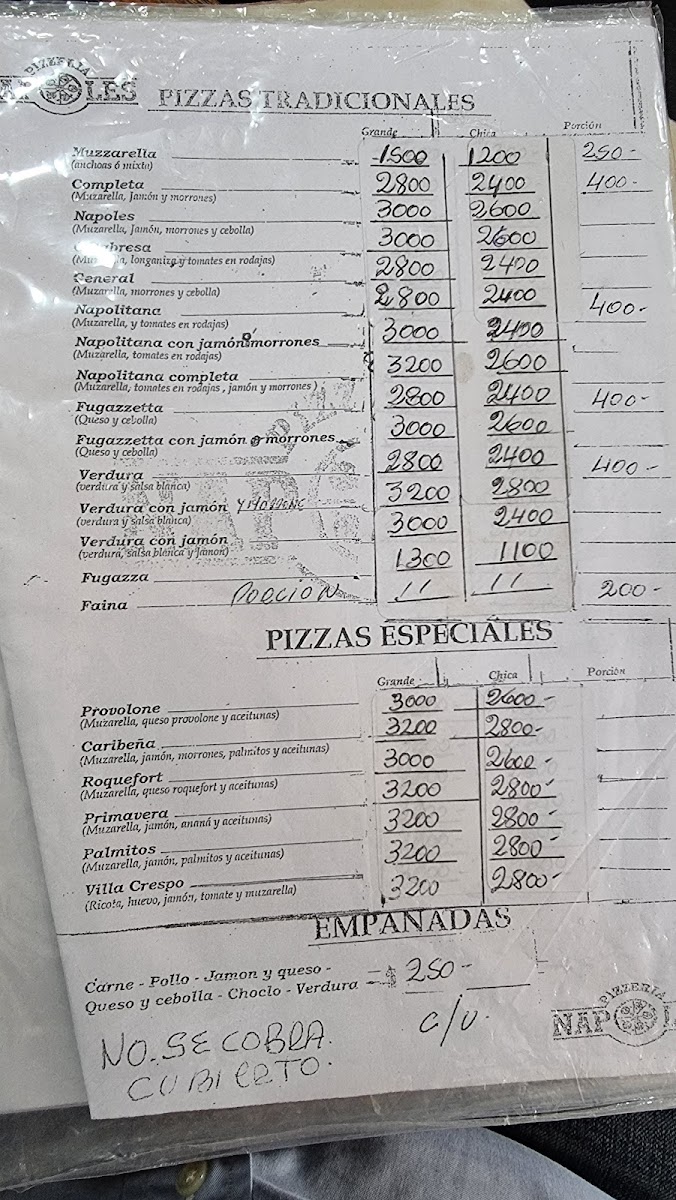 PIZZERIA
NAPOLES PIZZAS TRADICIONALES
Grande Chica Porción
Muzzarella 1500 1200 250-
(anchoas ó mixta)
Completa 2800 2400 400-
(Muzarella, Jamón y morrones)
Napoles 3000 2600
(Muzarella, Jamón, morrones y cebolla)
Calabresa 3000 2600
(Muzarella, longaniza y tomates en rodajas)
General 2800 2400
(Muzarella, morrones y cebolla)
Napolitana 2800 2400 400-
(Muzarella, y tomates en rodajas)
Napolitana con jamón o morrones 3000 2400
(Muzarella, tomates en rodajas)
Napolitana completa 3200 2600
(Muzarella, tomates en rodajas, jamón y morrones)
Fugazzetta 2800 2400 400-
(Queso y cebolla)
Fugazzetta con jamón o morrones 3000 2600
(Queso y cebolla)
Verdura 2800 2400 400-
(verdura y salsa blanca)
Verdura con jamón y morrone 3200 2800
(verdura y salsa blanca)
Verdura con jamón 3000 2400
(verdura, salsa blanca y jamón)
Fugazza 1300 1100
Faina PORCION 11 11 200-
PIZZAS ESPECIALES
Grande Chica Porción
3000 2600-
Provolone 3200 2800-
(Muzarella, queso provolone y aceitunas)
Caribeña 3000 2600-
(Muzarella, jamón, morrones, palmitos y aceitunas)
Roquefort 3200 2800-
(Muzarella, queso roquefort y aceitunas)
Primavera 3200 2800-
(Muzarella, jamón, ananá y aceitunas)
Palmitos 3200 2800-
(Muzarella, jamón, palmitos y aceitunas)
Villa Crespo 3200 2800-
(Ricota, huevo, jamón, tomate y muzarella)
EMPANADAS
Carne - Pollo - Jamon y queso -
Queso y cebolla - Choclo - Verdura $ 250-
c/u.
NO.SE COBRA.
CUBIERTO.
PIZZERIA
NAP